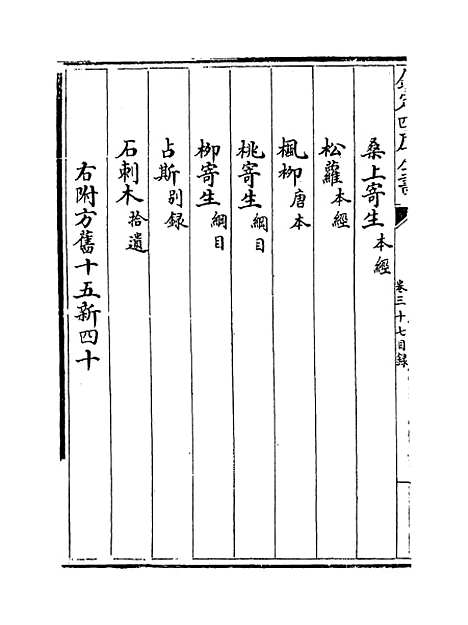 欽定四庫全書
卷三十七目錄
桑上寄生本經
松蘿本經
楓柳唐本
桃寄生綱目
柳寄生綱目
占斯别錄
石刺木拾遺
右附方舊十五新四十